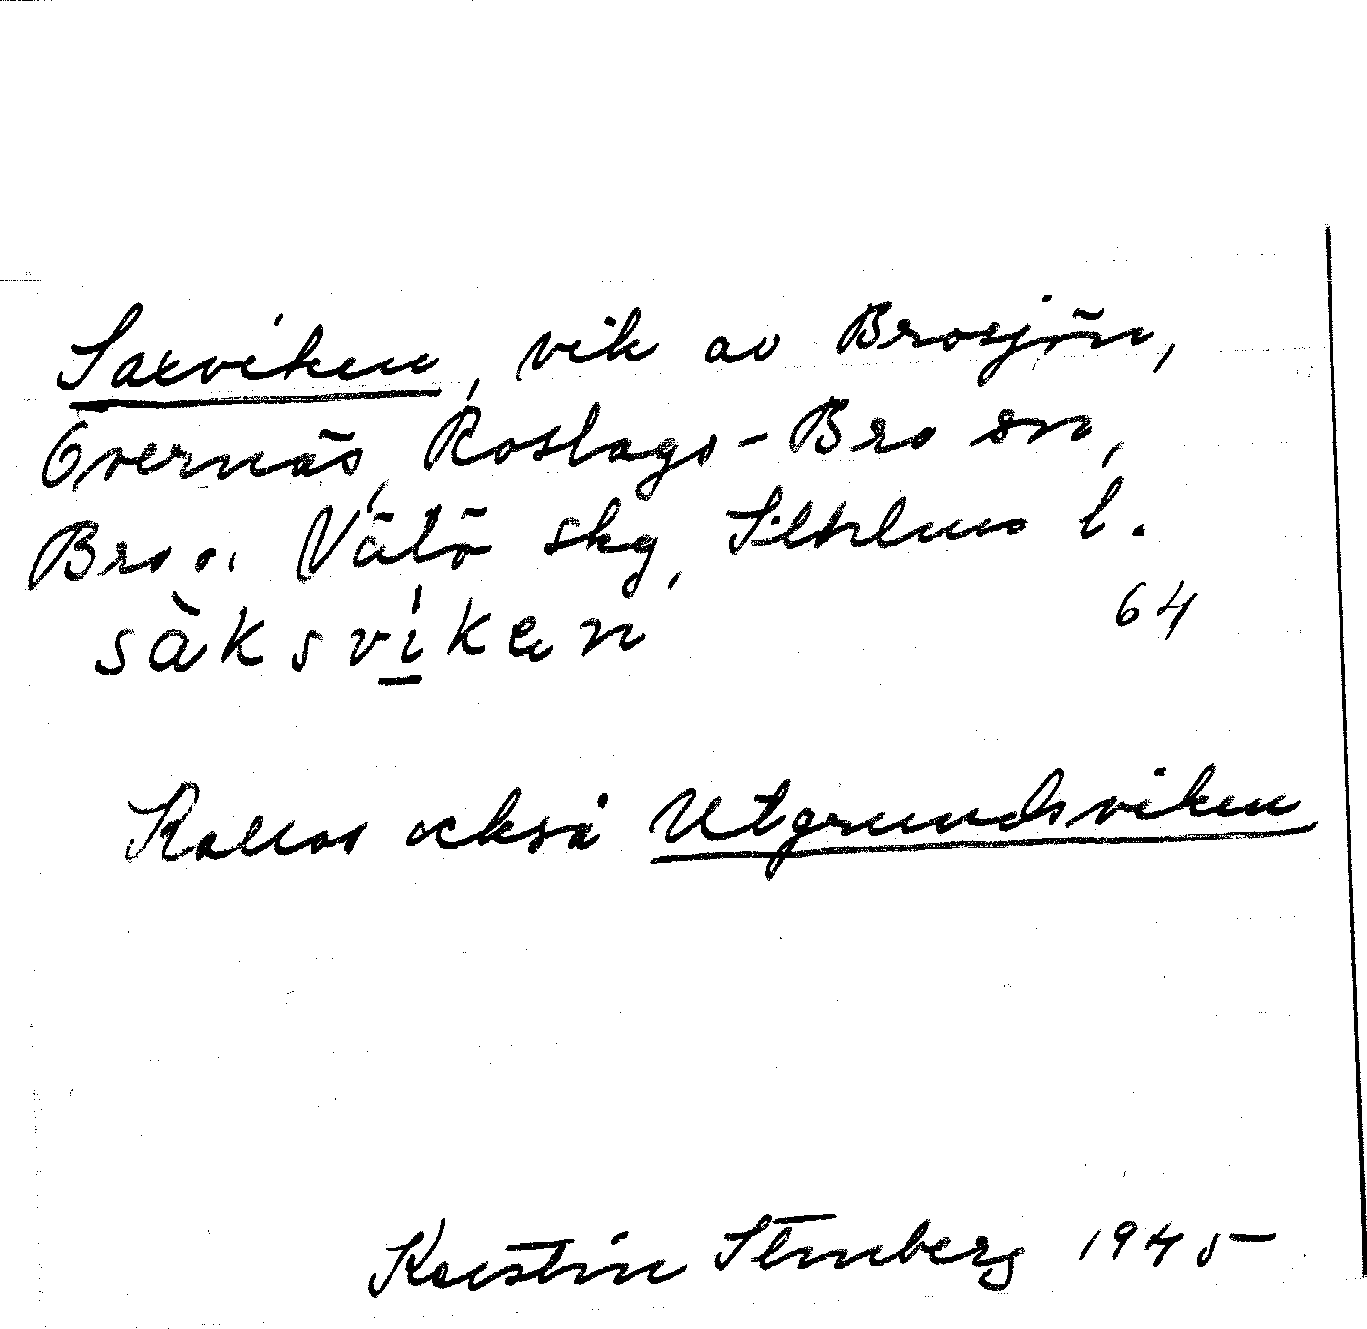 Saxviken, vik av Brosjön,
Övernäs, Roslags-Bro sn,
Bro o. Vätö skg, Sthlms l.
sàksvi̲ken 64
Kallas också Utgrundsviken
Kerstin Stenberg 1945